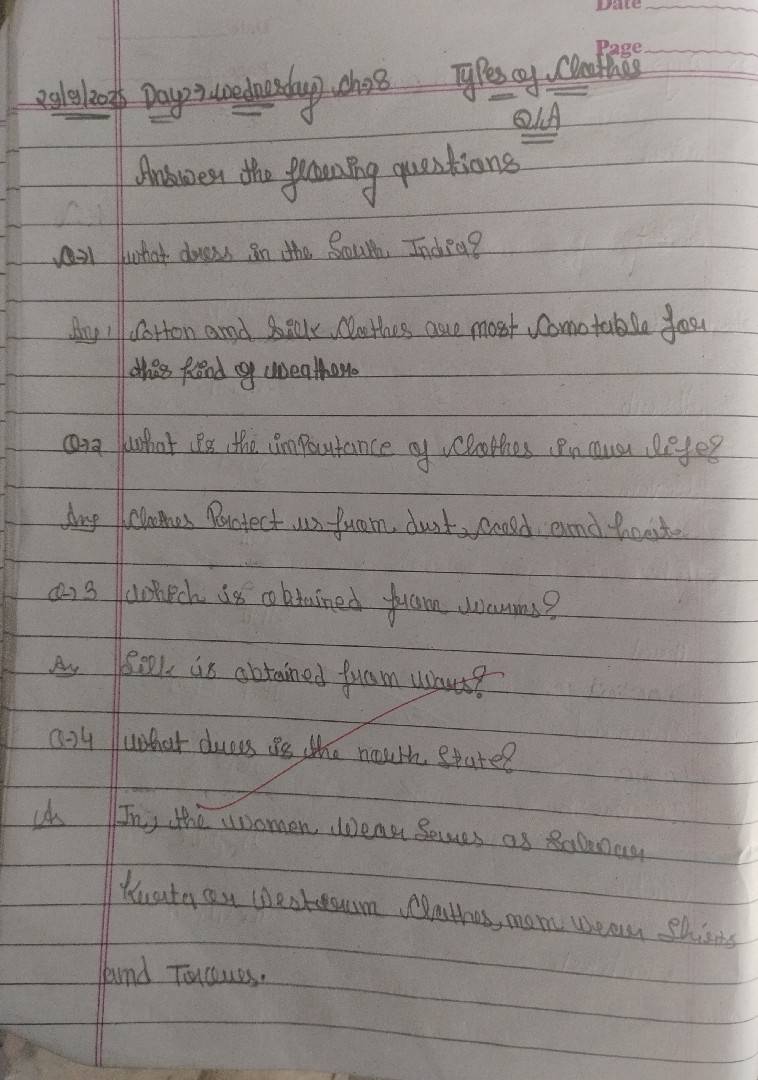 Date
Page
29/9/2025 Day→ wednesday) ch→8 Types of Clothes
Q/A
Answer the flowing questions
Q→1 what dress in the South India?
Ans Cotton and Silk Clothes are most Comotable for
this kind of weather.
Q→2 what is the importance of Clothes in our life?
Ans Clothes Protect us from dust, Coold and heat.
Q→3 which is obtained from warms?
An Silk is obtained from
Q→4 what dues is the nouth State?
A In, the women wear as
Kurta or Westerum Clothes, mem wear Shirts
and